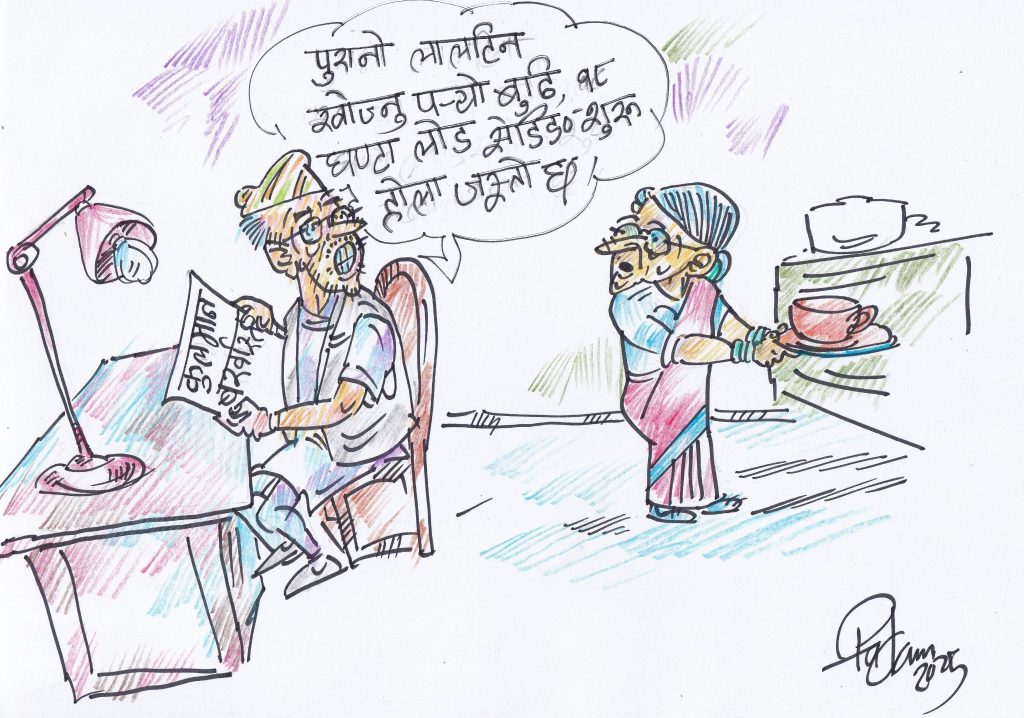 पुरानो लालटिन
खोज्नु पर्‍यो बुढि, १८
घण्टा लोड सेडिङ शुरू
होला जस्तो छ।
कुलमान
बरखास्त